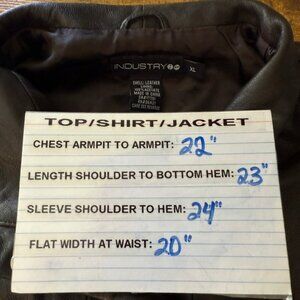 INDUSTRY
XL
SHELL: LEATHER
MADE IN CHINA
TOP/SHIRT/JACKET
CHEST ARMPIT TO ARMPIT: 22"
LENGTH SHOULDER TO BOTTOM HEM: 23"
SLEEVE SHOULDER TO HEM: 24"
FLAT WIDTH AT WAIST: 20"